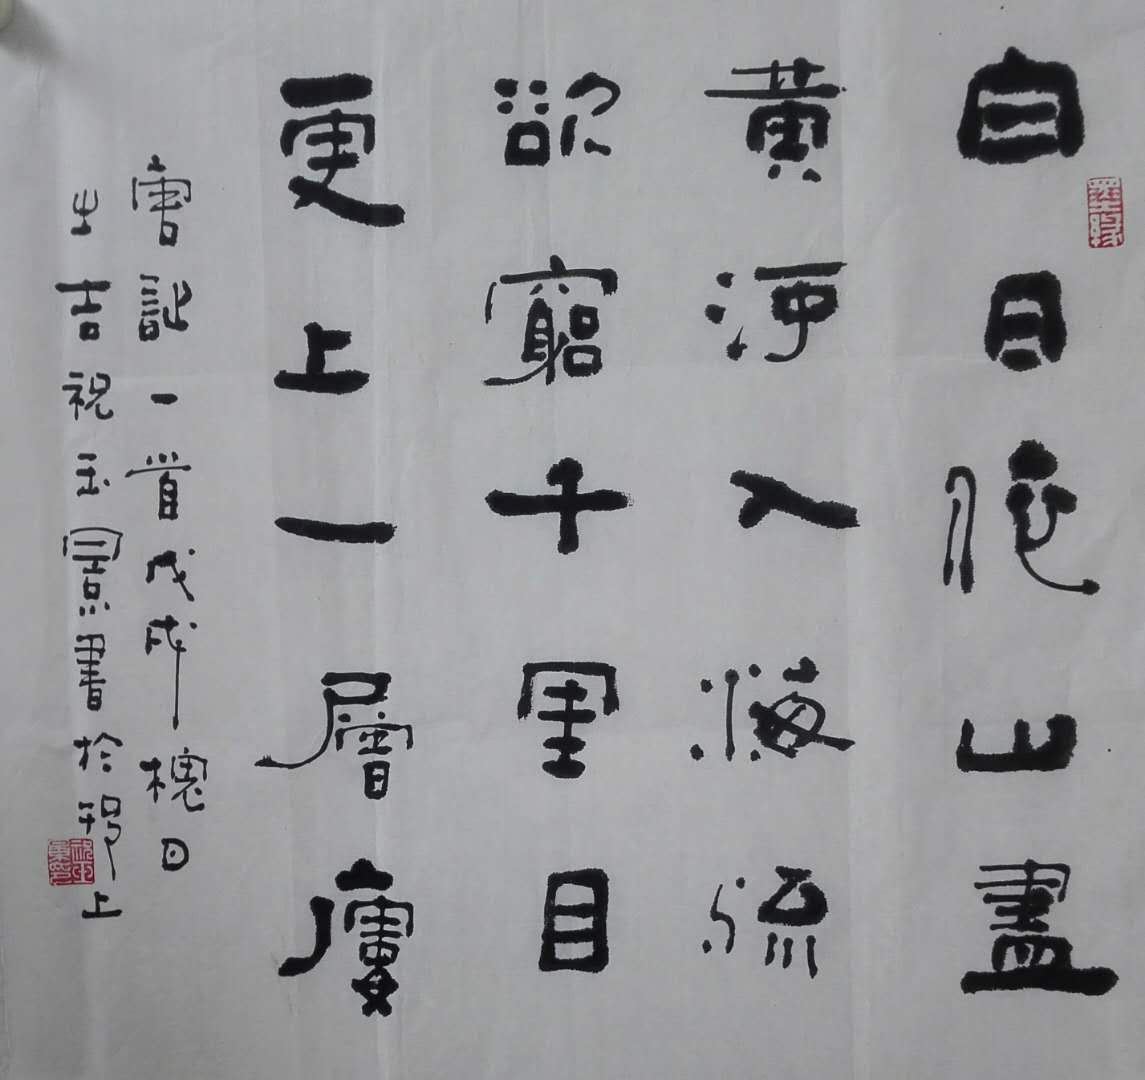 白日依山盡
黃河入海流
欲窮千里目
更上一層廔
唐詩一首戊戌槐月
之吉祝玉景書於邗上
墨緣